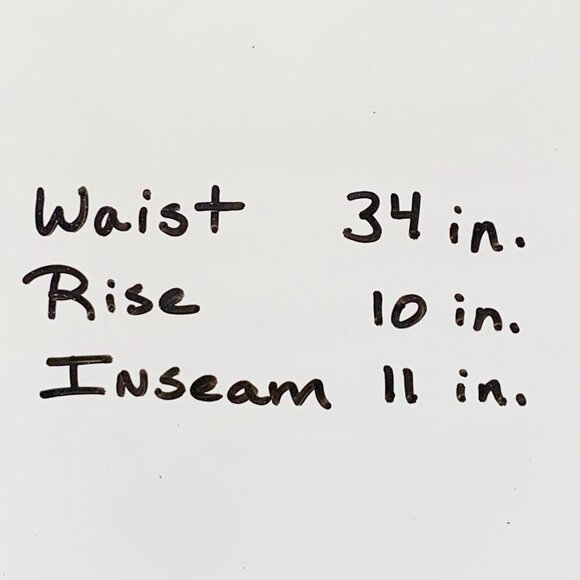 Waist 34 in.
Rise 10 in.
Inseam 11 in.